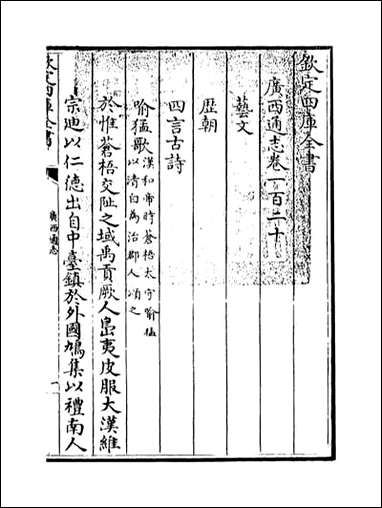 欽定四庫全書
廣西通志卷一百二十
藝文
歷朝
四言古詩
喻猛歌漢和帝時蒼梧太守喻猛
以清白為治郡人頌之
於惟蒼梧交阯之域禹貢厥人島夷皮服大漢維
宗迪以仁德出自中臺鎮於外國鳩集以禮南人
欽定四庫全書
廣西通志